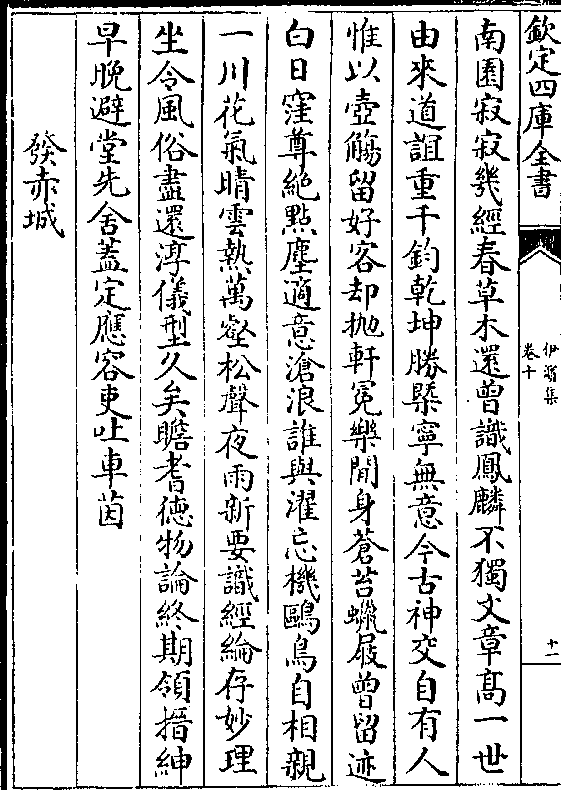 欽定四庫全書
南園寂寂幾經春草木還曾識鳳麟不獨文章髙一世
由來道誼重千鈞乾坤勝槩寜無意今古神交自有人
惟以壺觴留好客却抛軒冕樂閒身蒼苔蠟屐曾留迹
白日窪尊絶點塵適意滄浪誰與濯忘機鷗鳥自相親
一川花氣晴雲熱萬壑松聲夜雨新要識經綸存妙理
坐令風俗盡還淳儀型久矣瞻耆徳物論終期領搢紳
早晚避堂先舍蓋定應容吏吐車茵
發赤城
伊濱集
卷十
十一